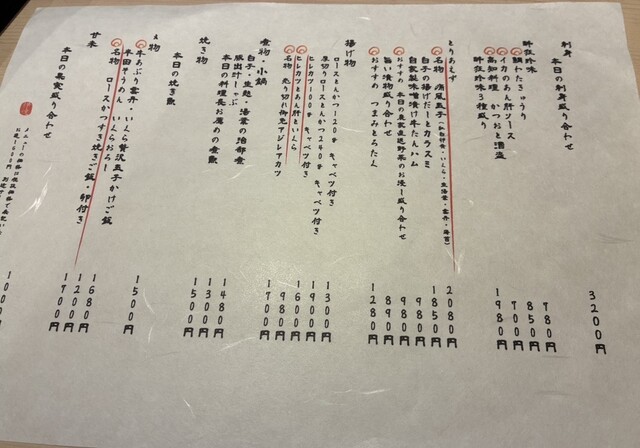 刺身
本日の刺身盛り合わせ 3200円
珍味
鯛わたきゅうり 780円
イカのあん肝ソース 850円
高知料理 かつおと酒盗 700円
珍味3種盛り 1980円
とりあえず
名物 痛風玉子 2080円
白子の揚げだーとカラスミ 1850円
自家製味噌漬け牛たんハム 980円
おすすめ 本日の農家直送野菜のお浸し盛り合わせ 980円
旨い漬物盛り合わせ 890円
おすすめ つまみとろたん 1280円
揚げ物
ロースとんかつ120g キャベツ付き 1300円
厚切りロースとんかつ240g キャベツ付き 1900円
ヒレカツ100g キャベツ付き 1600円
ヒレカツとあん肝といくら 980円
名物 売り切れ御免アジレアカツ 1700円
煮物・小鍋
白子・生麩・湯葉の治部煮 1480円
豚肉汁しゃぶ 1300円
本日の料理長お薦めの煮魚 1500円
焼き物
本日の焼き魚
〆物
牛あぶり雲丹・いくら贅沢玉子かけご飯 1500円
半田そうめん・いくらおろし
名物 ロースかつすき焼きご飯・卵付き 1680円
甘味 1200円
本日の果実盛り合わせ 1700円